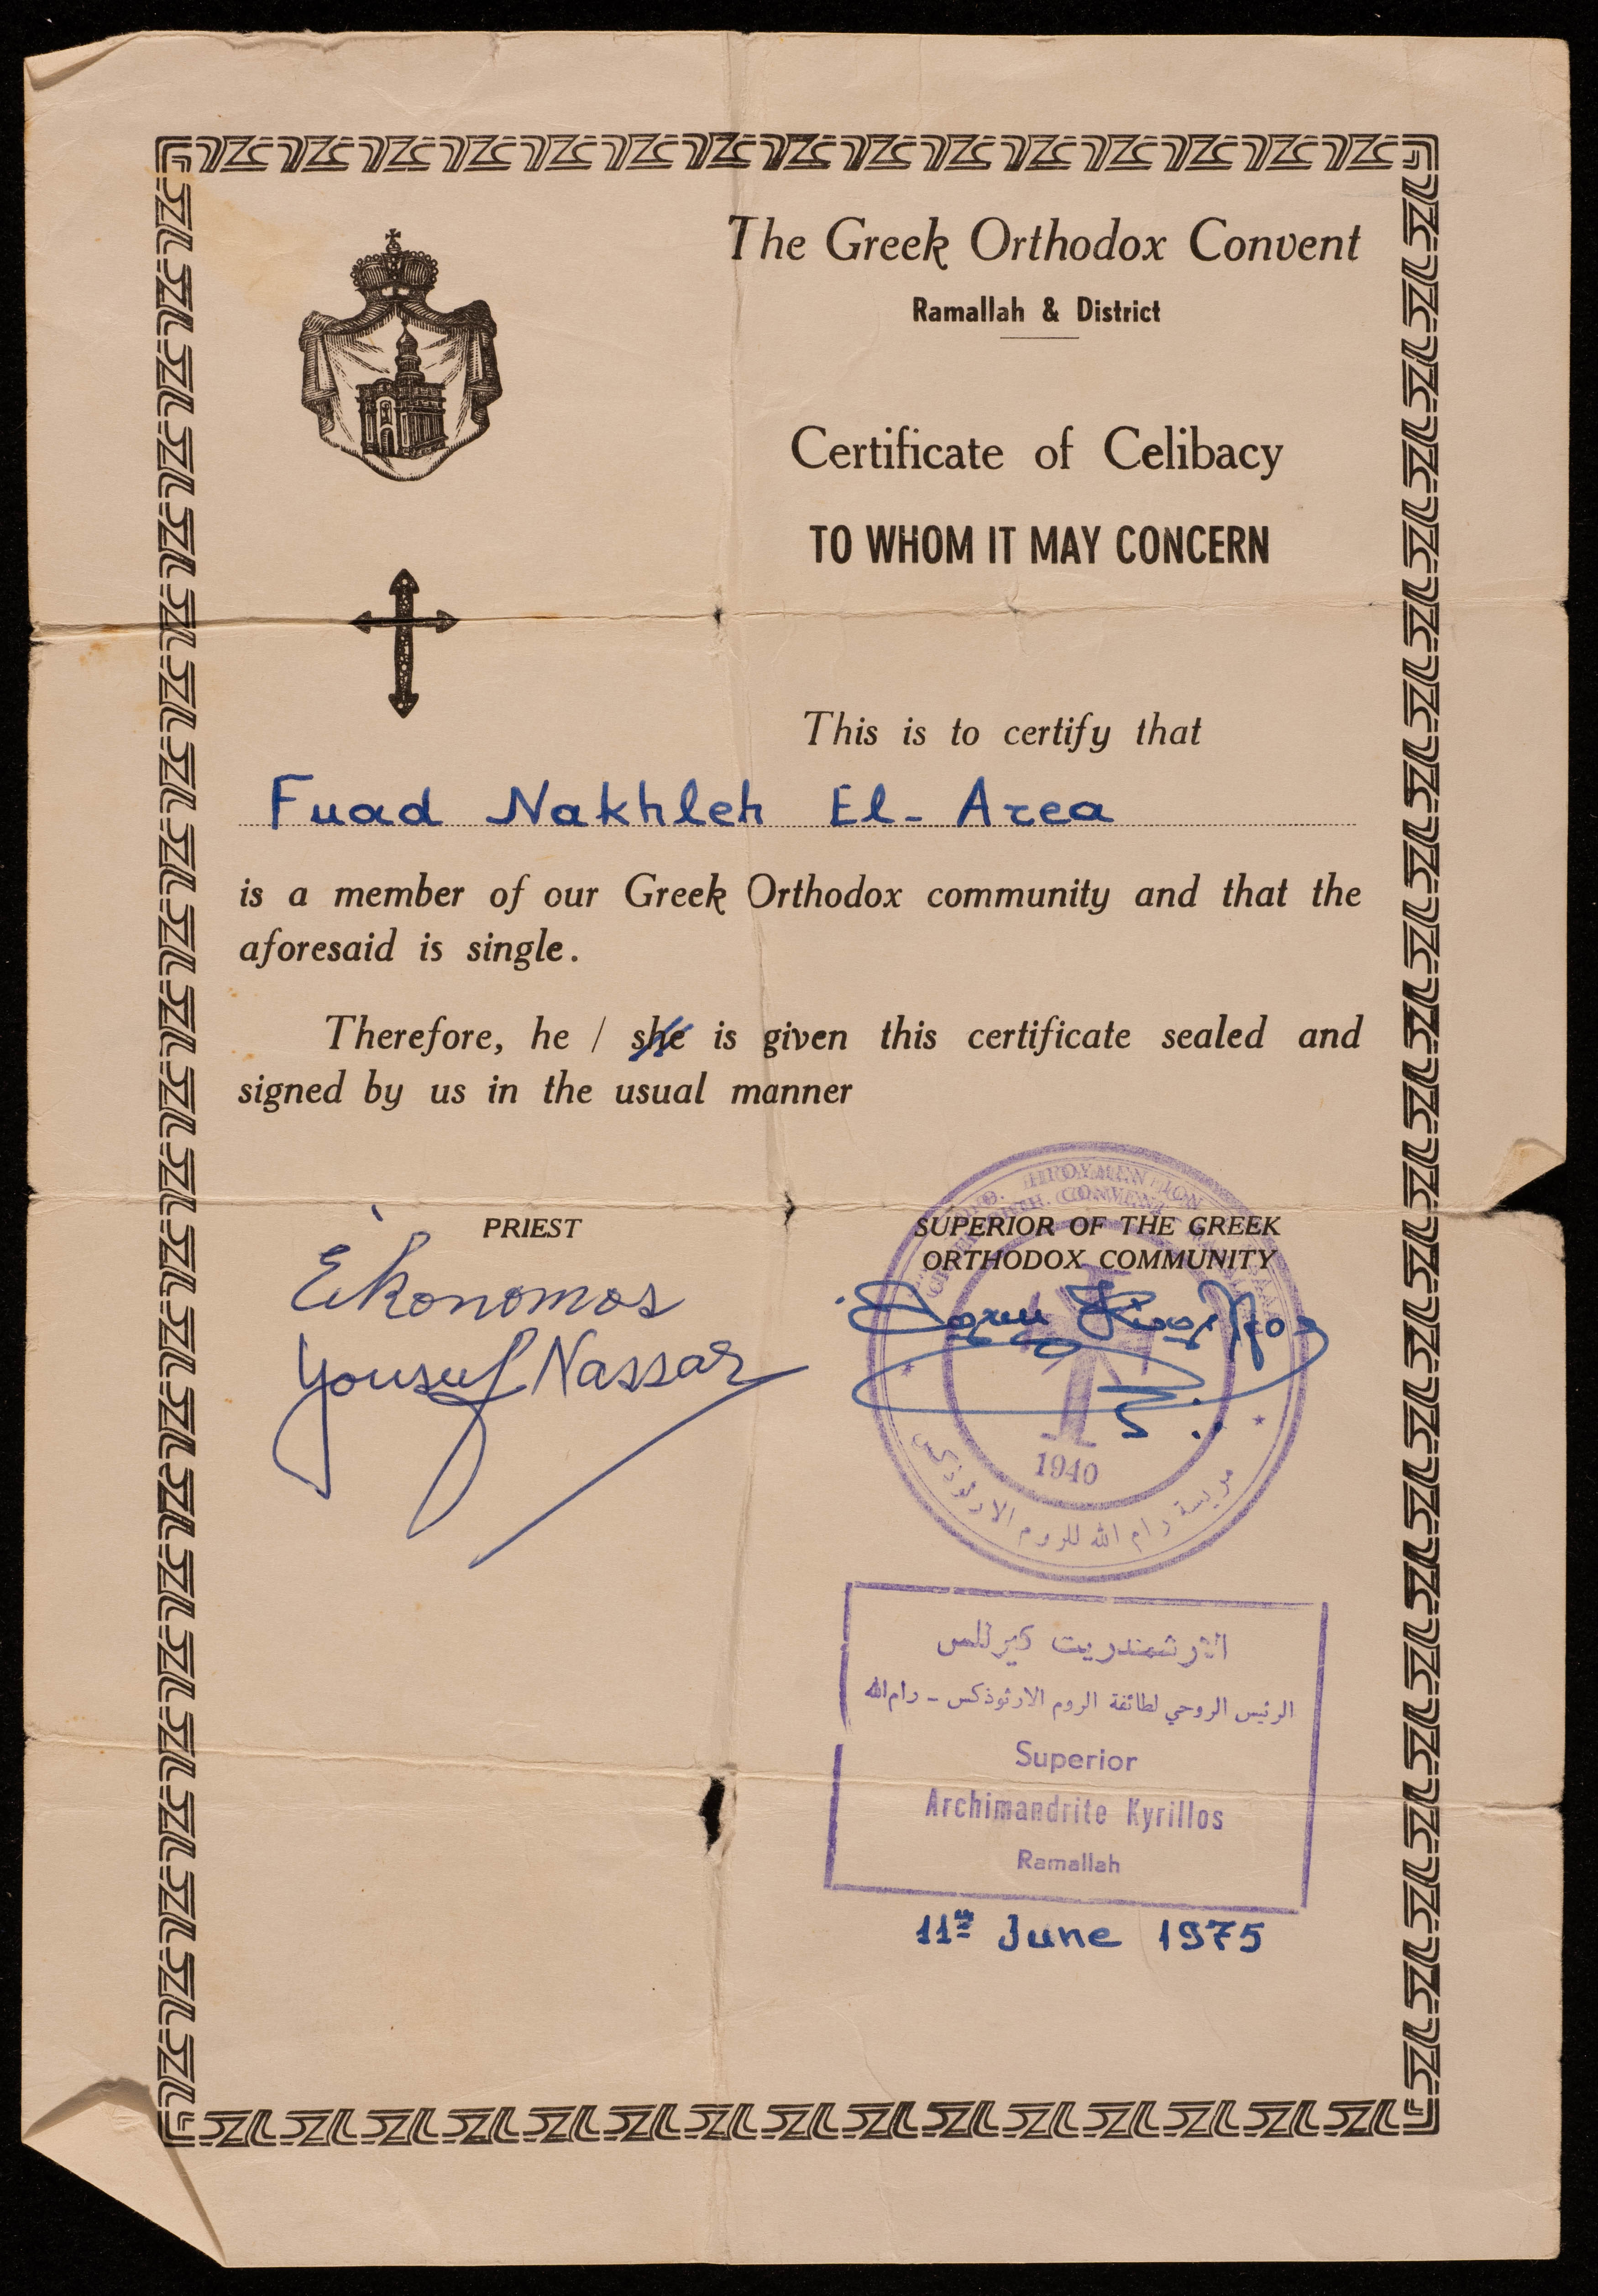 The Greek Orthodox Convent
Ramallah & District
Certificate of Celibacy
TO WHOM IT MAY CONCERN
This is to certify that
Fuad Nakhleh El-Area
is a member of our Greek Orthodox community and that the
aforesaid is single.
Therefore, he / she is given this certificate sealed and
signed by us in the usual manner
PRIEST
Eikonomos
Yousuf Nassar
SUPERIOR OF THE GREEK
ORTHODOX COMMUNITY
ORTH. CONVENT
1940
رام الله للروم الارثوذكس
الارشمندريت كيرللس
الرئيس الروحي لطائفة الروم الارثوذكس - رام الله
Superior
Archimandrite Kyrillos
Ramallah
11th June 1975